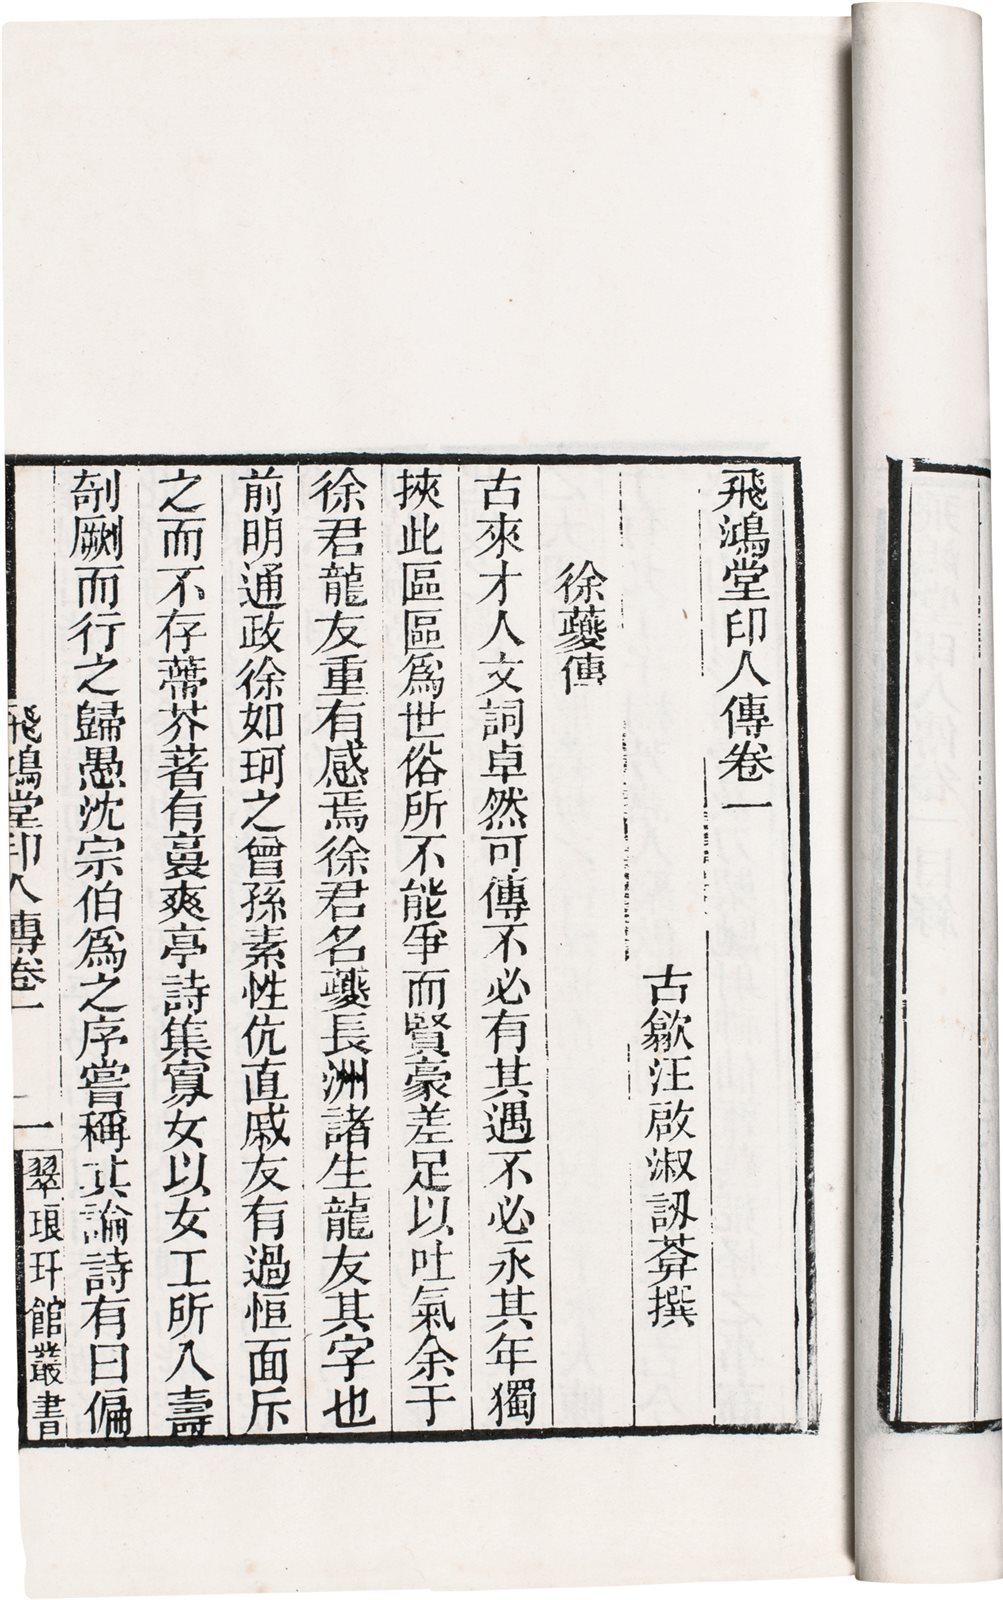 飛鴻堂印人傳卷一
古歙汪啟淑訒菴撰
徐夔傳
古來才人文詞卓然可傳不必有其遇不必永其年獨
挾此區區爲世俗所不能爭而賢豪差足以吐氣余于
徐君龍友重有感焉徐君名夔長洲諸生龍友其字也
前明通政徐如珂之曾孫素性伉直戚友有過恒面斥
之而不存蔕芥著有㬅爽亭詩集寡女以女工所入壽
剞劂而行之歸愚沈宗伯爲之序嘗稱其論詩有曰偏
飛鴻堂印人傳卷一
一
翠琅玕館叢書